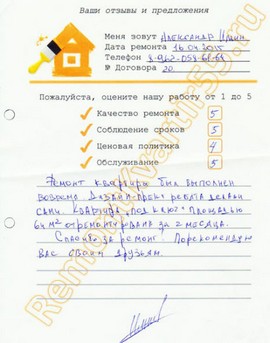 Ваши отзывы и предложения
Меня зовут Александр
Дата ремонта 16.04.2015
Телефон
№ Договора 20
Пожалуйста, оцените нашу работу от 1 до 5
Качество ремонта 5
Соблюдение сроков 5
Ценовая политика 4
Обслуживание 5
Ремонт квартиры был выполнен
вовремя. Дизайн-проект ребята делали
сами. Квартира "под ключ" площадью
64 м² отремонтирована за 2 месяца.
Спасибо за ремонт! Порекомендую
вас своим друзьям.